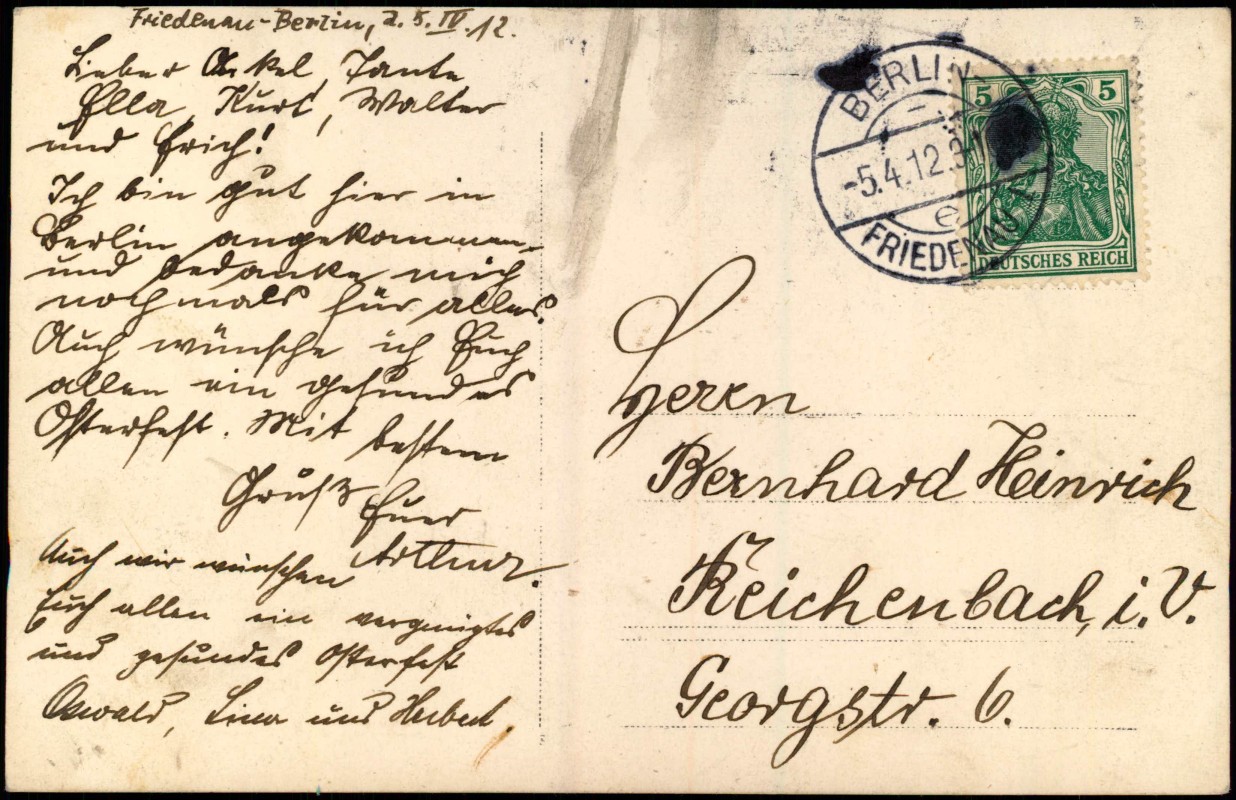 Friedenau-Berlin, d. 5. IV. 12.
Lieber Onkel, Tante
Ella, Kurt, Walter
und Erich!
Ich bin gut hier in
Berlin angekommen
und bedanke mich
nochmals für alles.
Auch wünsche ich Euch
allen ein gesundes
Osterfest. Mit bestem
Gruß Euer
Arthur.
Auch wir wünschen
Euch allen ein vergnügtes
und gesundes Osterfest
Oswald, Lina und Herbert.
BERLIN
-5.4.12.9-
e
FRIEDENAU 1
5 5
DEUTSCHES REICH
Herrn
Bernhard Heinrich
Reichenbach, i. V.
Georgstr. 6.